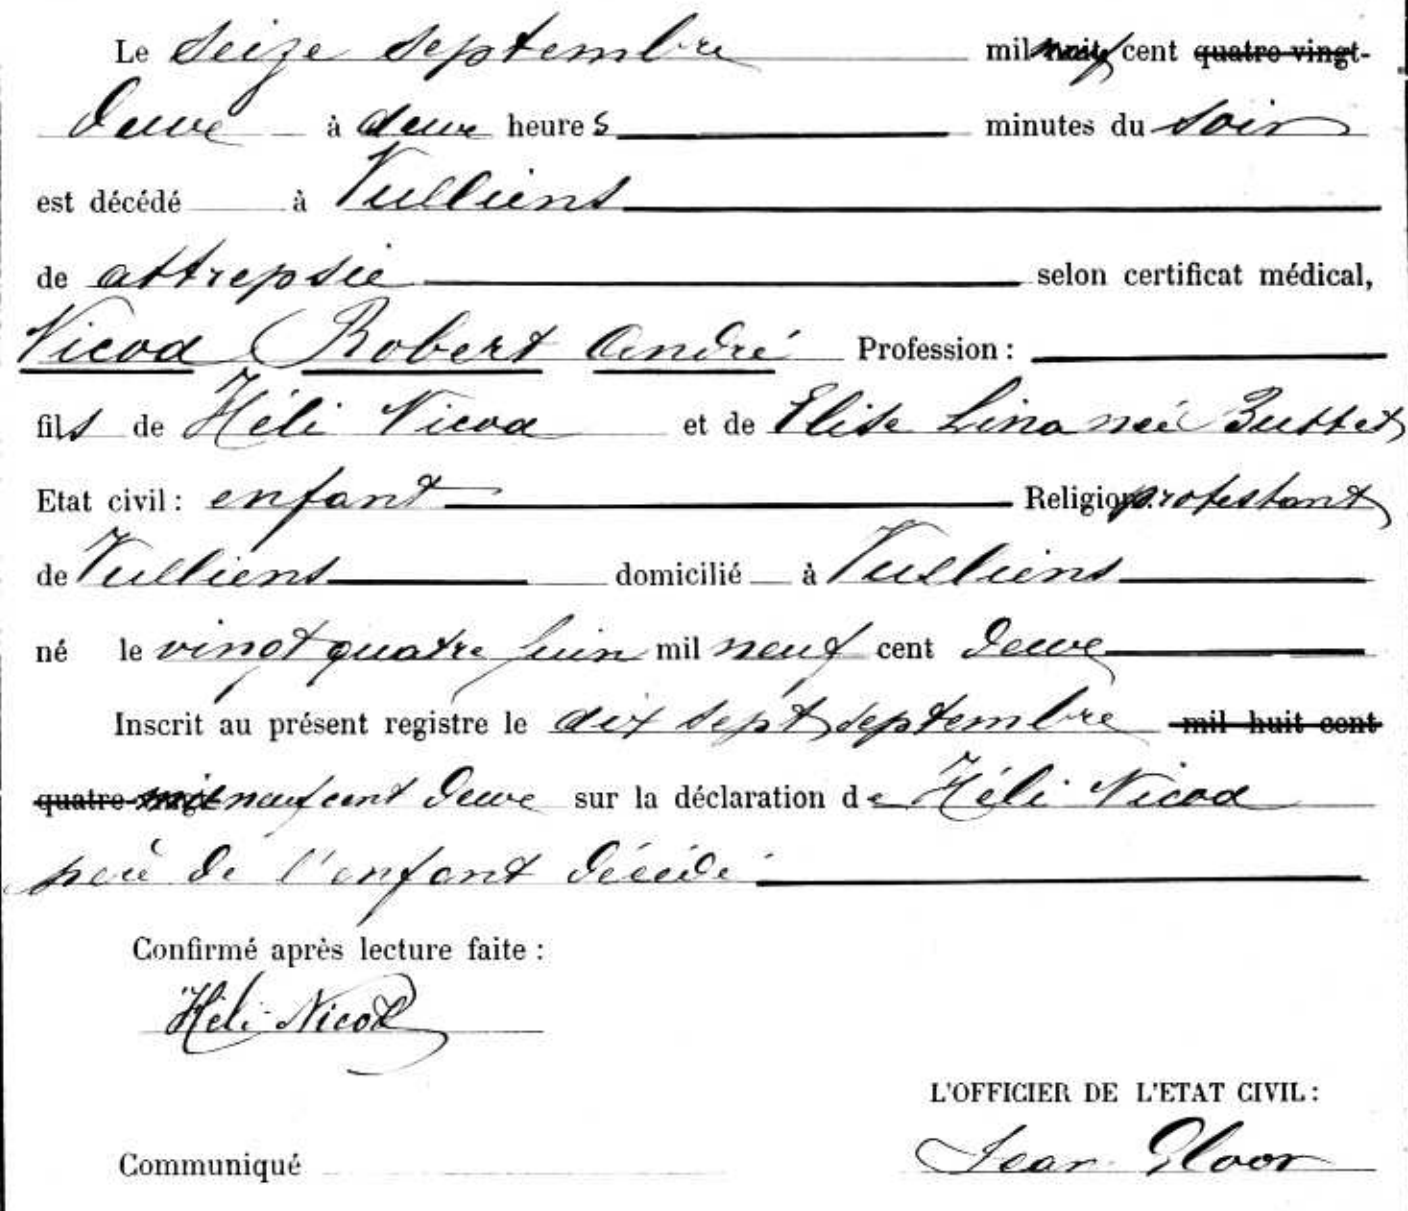 Le seize septembre mil neuf cent quatre-vingt-
deux à deux heures minutes du soir
est décédé à Vulliens
de attrepsie selon certificat médical,
Nicod Robert André Profession :
fils de Héli Nicod et de Elise Lina née Buttet
Etat civil : enfant Religion: protestant
de Vulliens domicilié à Vulliens
né le vingt quatre juin mil neuf cent deux
Inscrit au présent registre le dix sept septembre mil huit cent
quatre- mil neuf cent deux sur la déclaration de Héli Nicod
père de l'enfant décédé
Confirmé après lecture faite :
Héli Nicod
L'OFFICIER DE L'ETAT CIVIL :
Jean Gloor
Communiqué